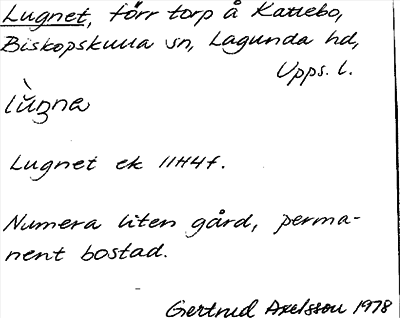 Lugnet, förr torp å Kattebo,
Biskopskulla sn, Lagunda hd,
Upps. l.
lùgna
Lugnet ek 11H4f.
Numera liten gård, perma-
nent bostad.
Gertrud Axelsson 1978